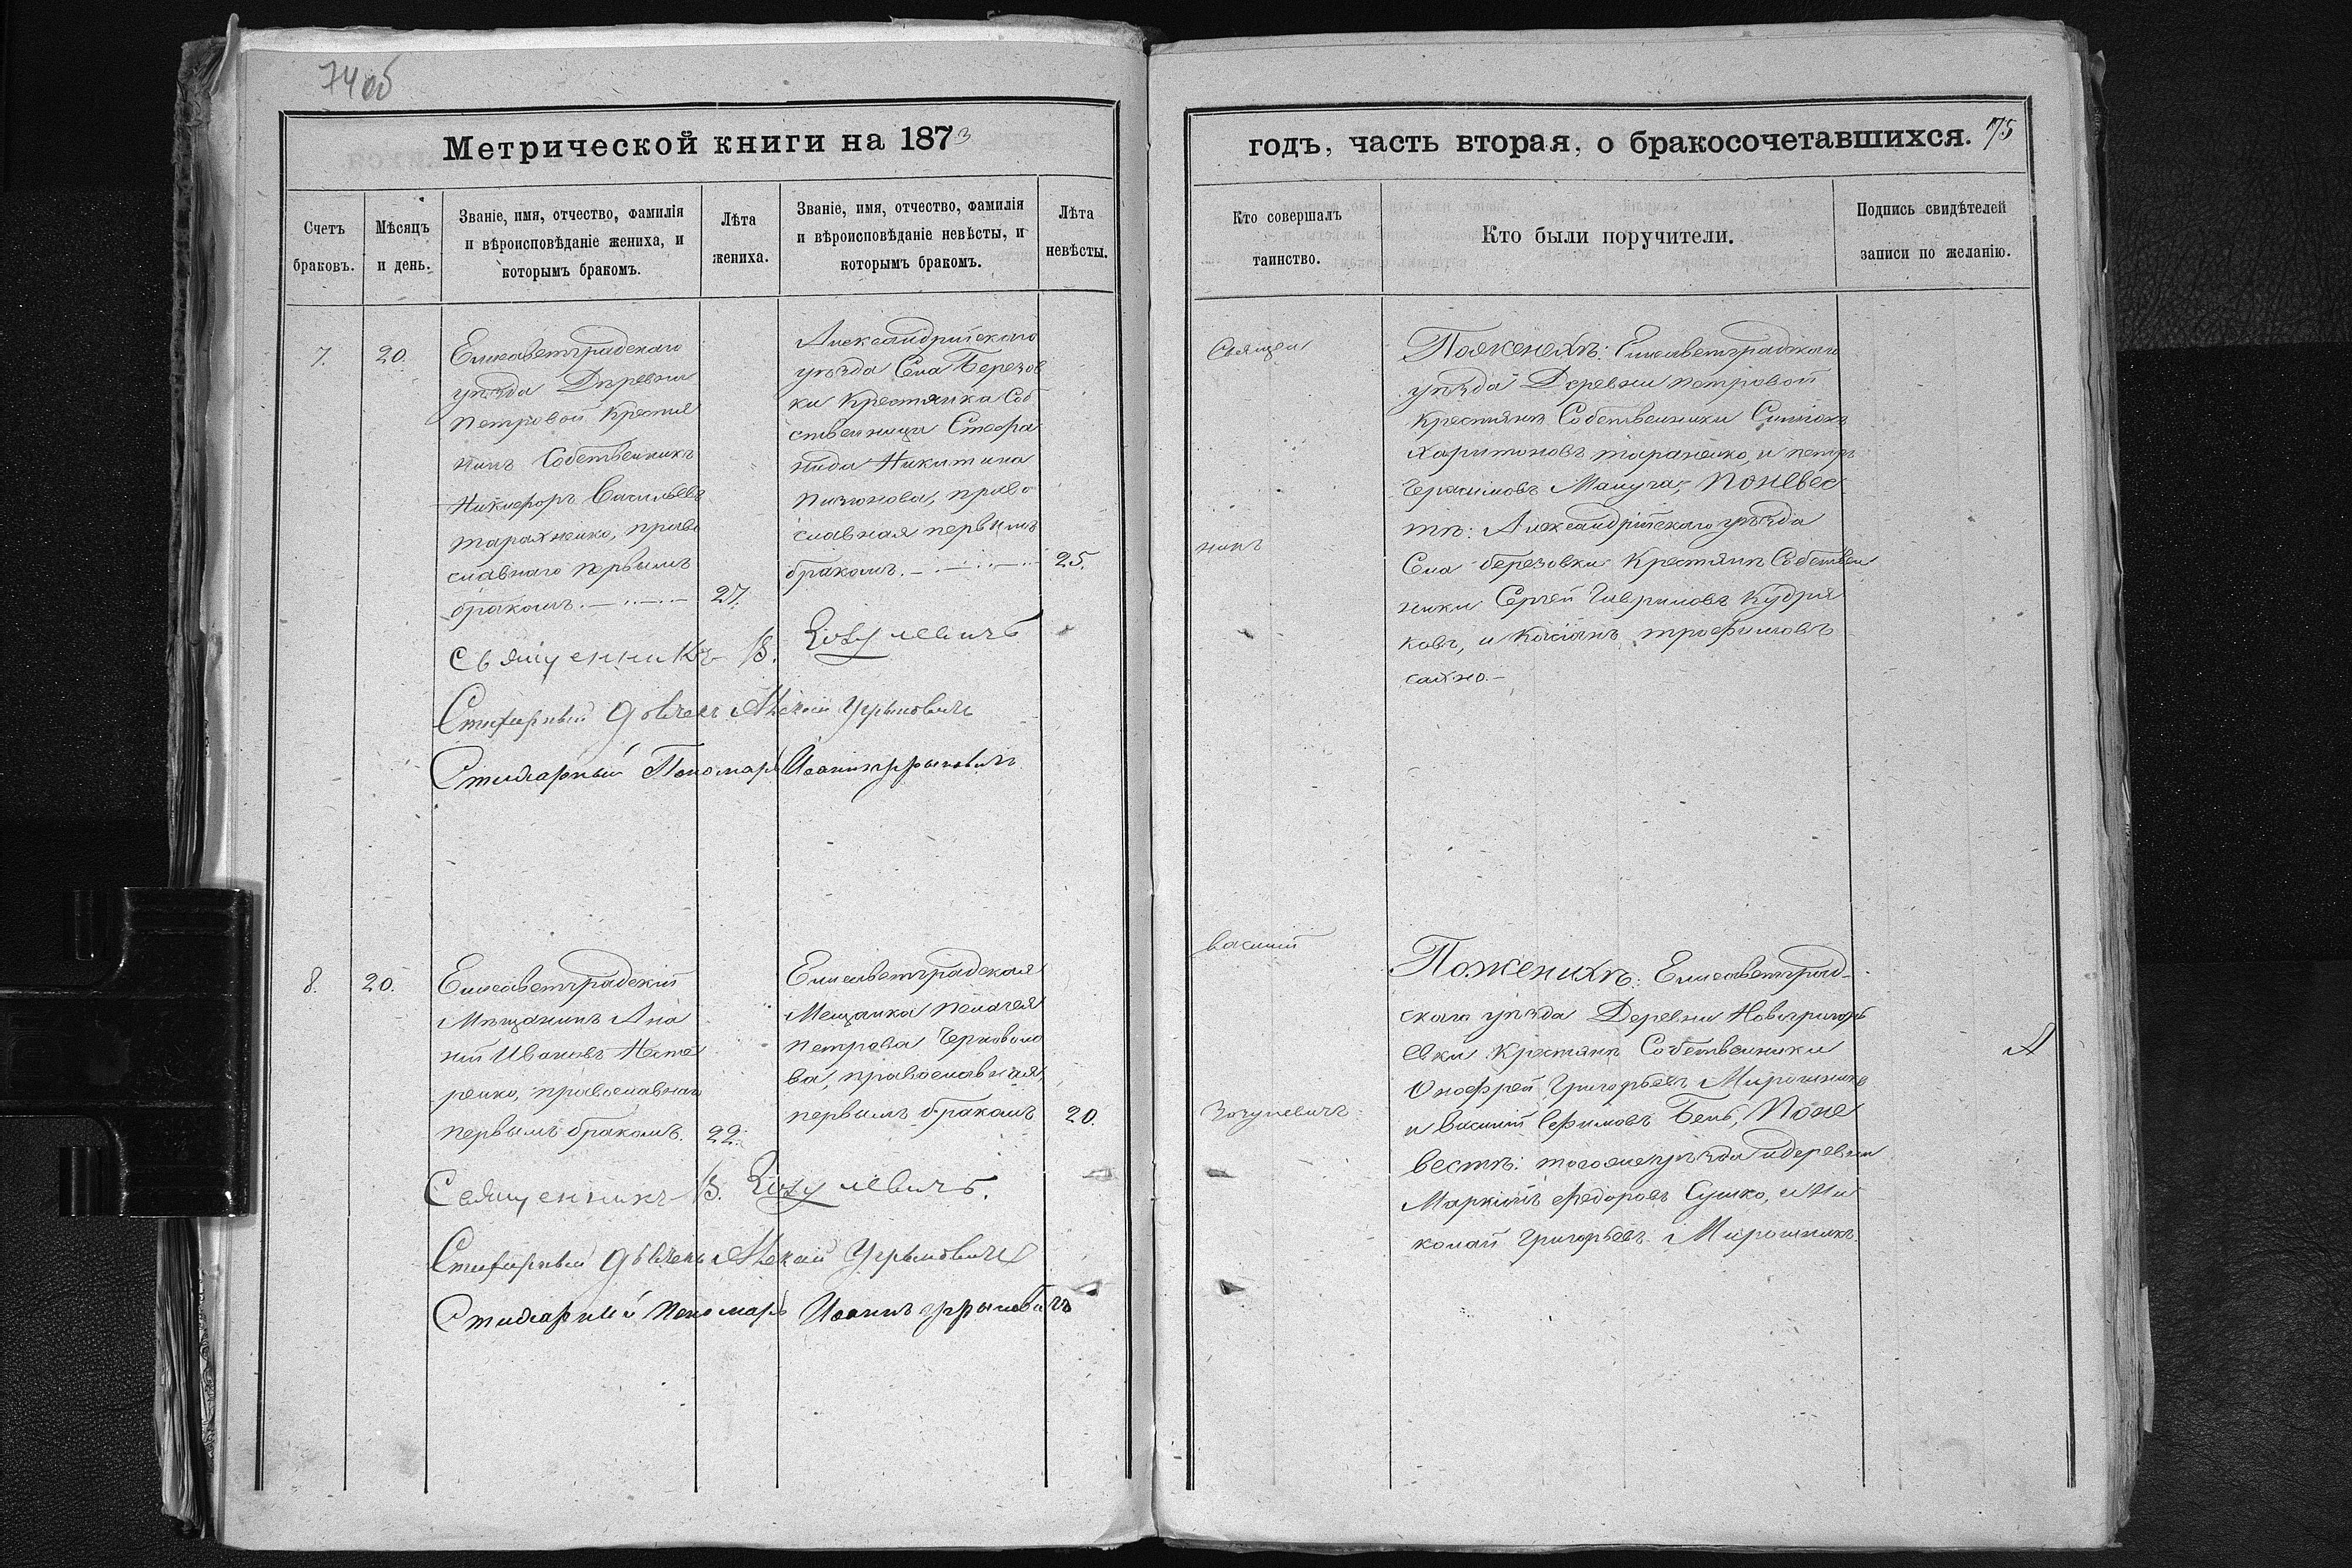 74 об
Метрической книги на 1873
Счетъ браковъ.
Мѣсяцъ и день.
Званіе, имя, отчество, фамилія
и вѣроисповѣданіе жениха, и
которымъ бракомъ.
Лѣта жениха.
Званіе, имя, отчество, фамилія
и вѣроисповѣданіе невѣсты, и
которымъ бракомъ.
Лѣта невѣсты.
7.
20.
Елисаветградскаго
уѣзда Деревни
Петровой Крестья
нинъ Собственникъ
Никифоръ Васильевъ
Тараненко, право
славнаго первымъ
бракомъ.
27.
Александрійскаго
уѣзда Села Березов
ки Крестянка Соб
ственница Стефа
нида Никитина
православная первымъ
бракомъ.
25.
Священникъ В. Зозулевичъ
Стихарный Дьячекъ Алексій Угрыновичъ
Стихарный Пономарь Иоаннъ Угрыновичъ
8.
20.
Елисаветградскій
Мѣщанинъ Ана
ній Ивановъ Несте
ренко, православнаго
первымъ бракомъ.
22.
Елисаветградская
Мещанка Пелагея
Петрова Черноволо
ва, православная,
первымъ бракомъ
20.
Священникъ В. Зозулевичъ.
Стихарный Дьячекъ Алексій Угрыновичъ
Стихарный Пономарь Иоаннъ Угрыновичъ
годъ, часть вторая, о бракосочетавшихся.
75
Кто совершалъ таинство.
Кто были поручители.
Подпись свидѣтелей записи по желанію.
Священ
никъ
Василій
Зозулевичъ
По женихѣ: Елисаветградскаго
уѣзда Деревни Петровой
Крестяне Собственники Симіонъ
Харитоновъ Тараненко, и Петръ
Герасимовъ Мамуга, По невес
тѣ: Александрійскаго уѣзда
Села Березовки Крестяне Собствен
ники Сергѣй Гавриловъ Кудря
ковъ, и Касіанъ Трофимовъ
Сахно.
По женихѣ: Елисаветград
скаго уѣзда Деревни Новогригорь
евки Крестяне Собственники
Онофрей Григорьевъ Мирошникъ
и Василій Ефимовъ Бень, По не
вестѣ: того же уѣзда и деревни
Маркіянъ Федоровъ Сушко, и Ни
колай Григорьевъ Мирошникъ.